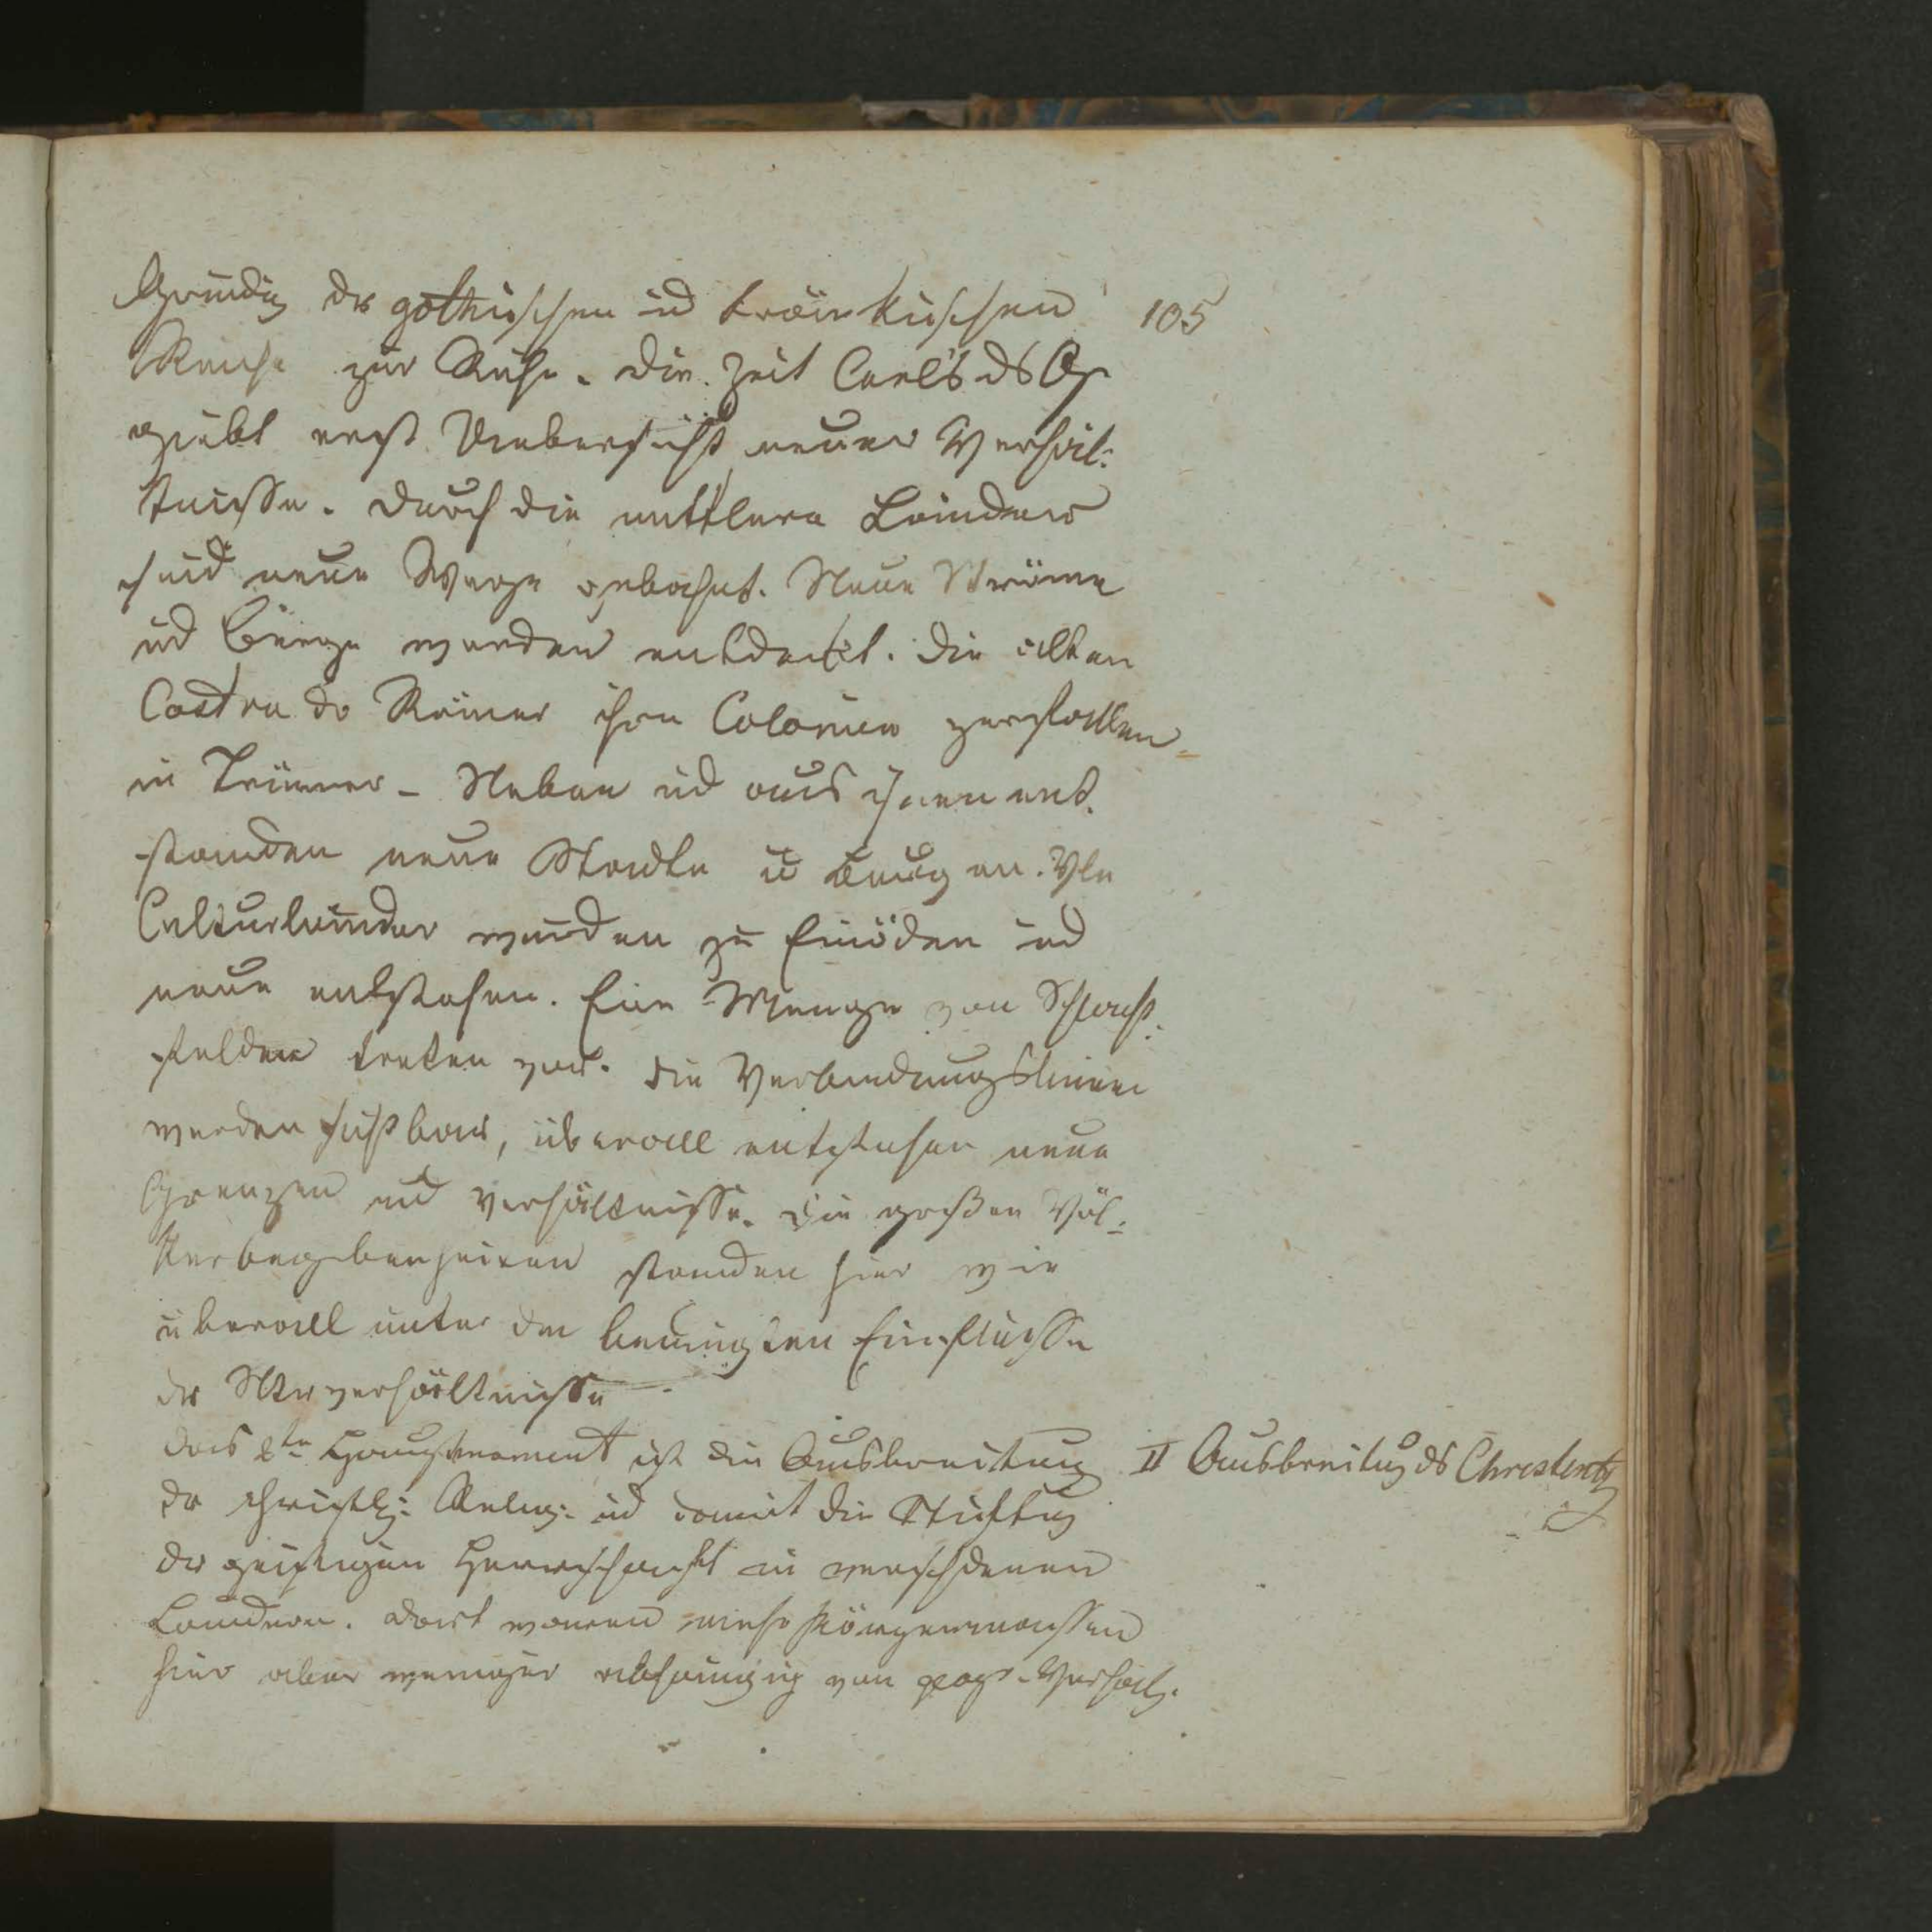 Gründg ds gothischen ud fränkischen
105
Reichs zur Ruhe. Die Zeit Carl's ds Gr
giebt erst Uebersicht neuer Verhäl:
tnisse. Durch die mittlern Länder
sind neue Wege gebahnt. Neue Ströme
ud Berge werden entdeckt. Die alten
Castra dr Römer ihre Colonien zerfallen
in Trümer - Neben ud aus ihnen ent.
standen neue Städte u Burgen. Vle
Culturländer wurden zu Einöden ud
neue entstehen. Eine Menge von Schlacht:
felder treten vor. Die Verbindungslinien
werden sichtbar, überall entstehen neue
Grenzen ud Verhältnisse. Die großen Völ:
kerbegebenheiten standen hier wie
überall unter den Einflusse
ds Verhältnisse
das 2te Hauptmoment ist die Ausbreitung
II Ausbreitug ds Christenth
dr christl: Relig: ud damit die Stiftug
dr geistigen Herrschaft in verschdenen
Ländern. Dort waren
hier aber weniger abhängig von geogr. Verhält.